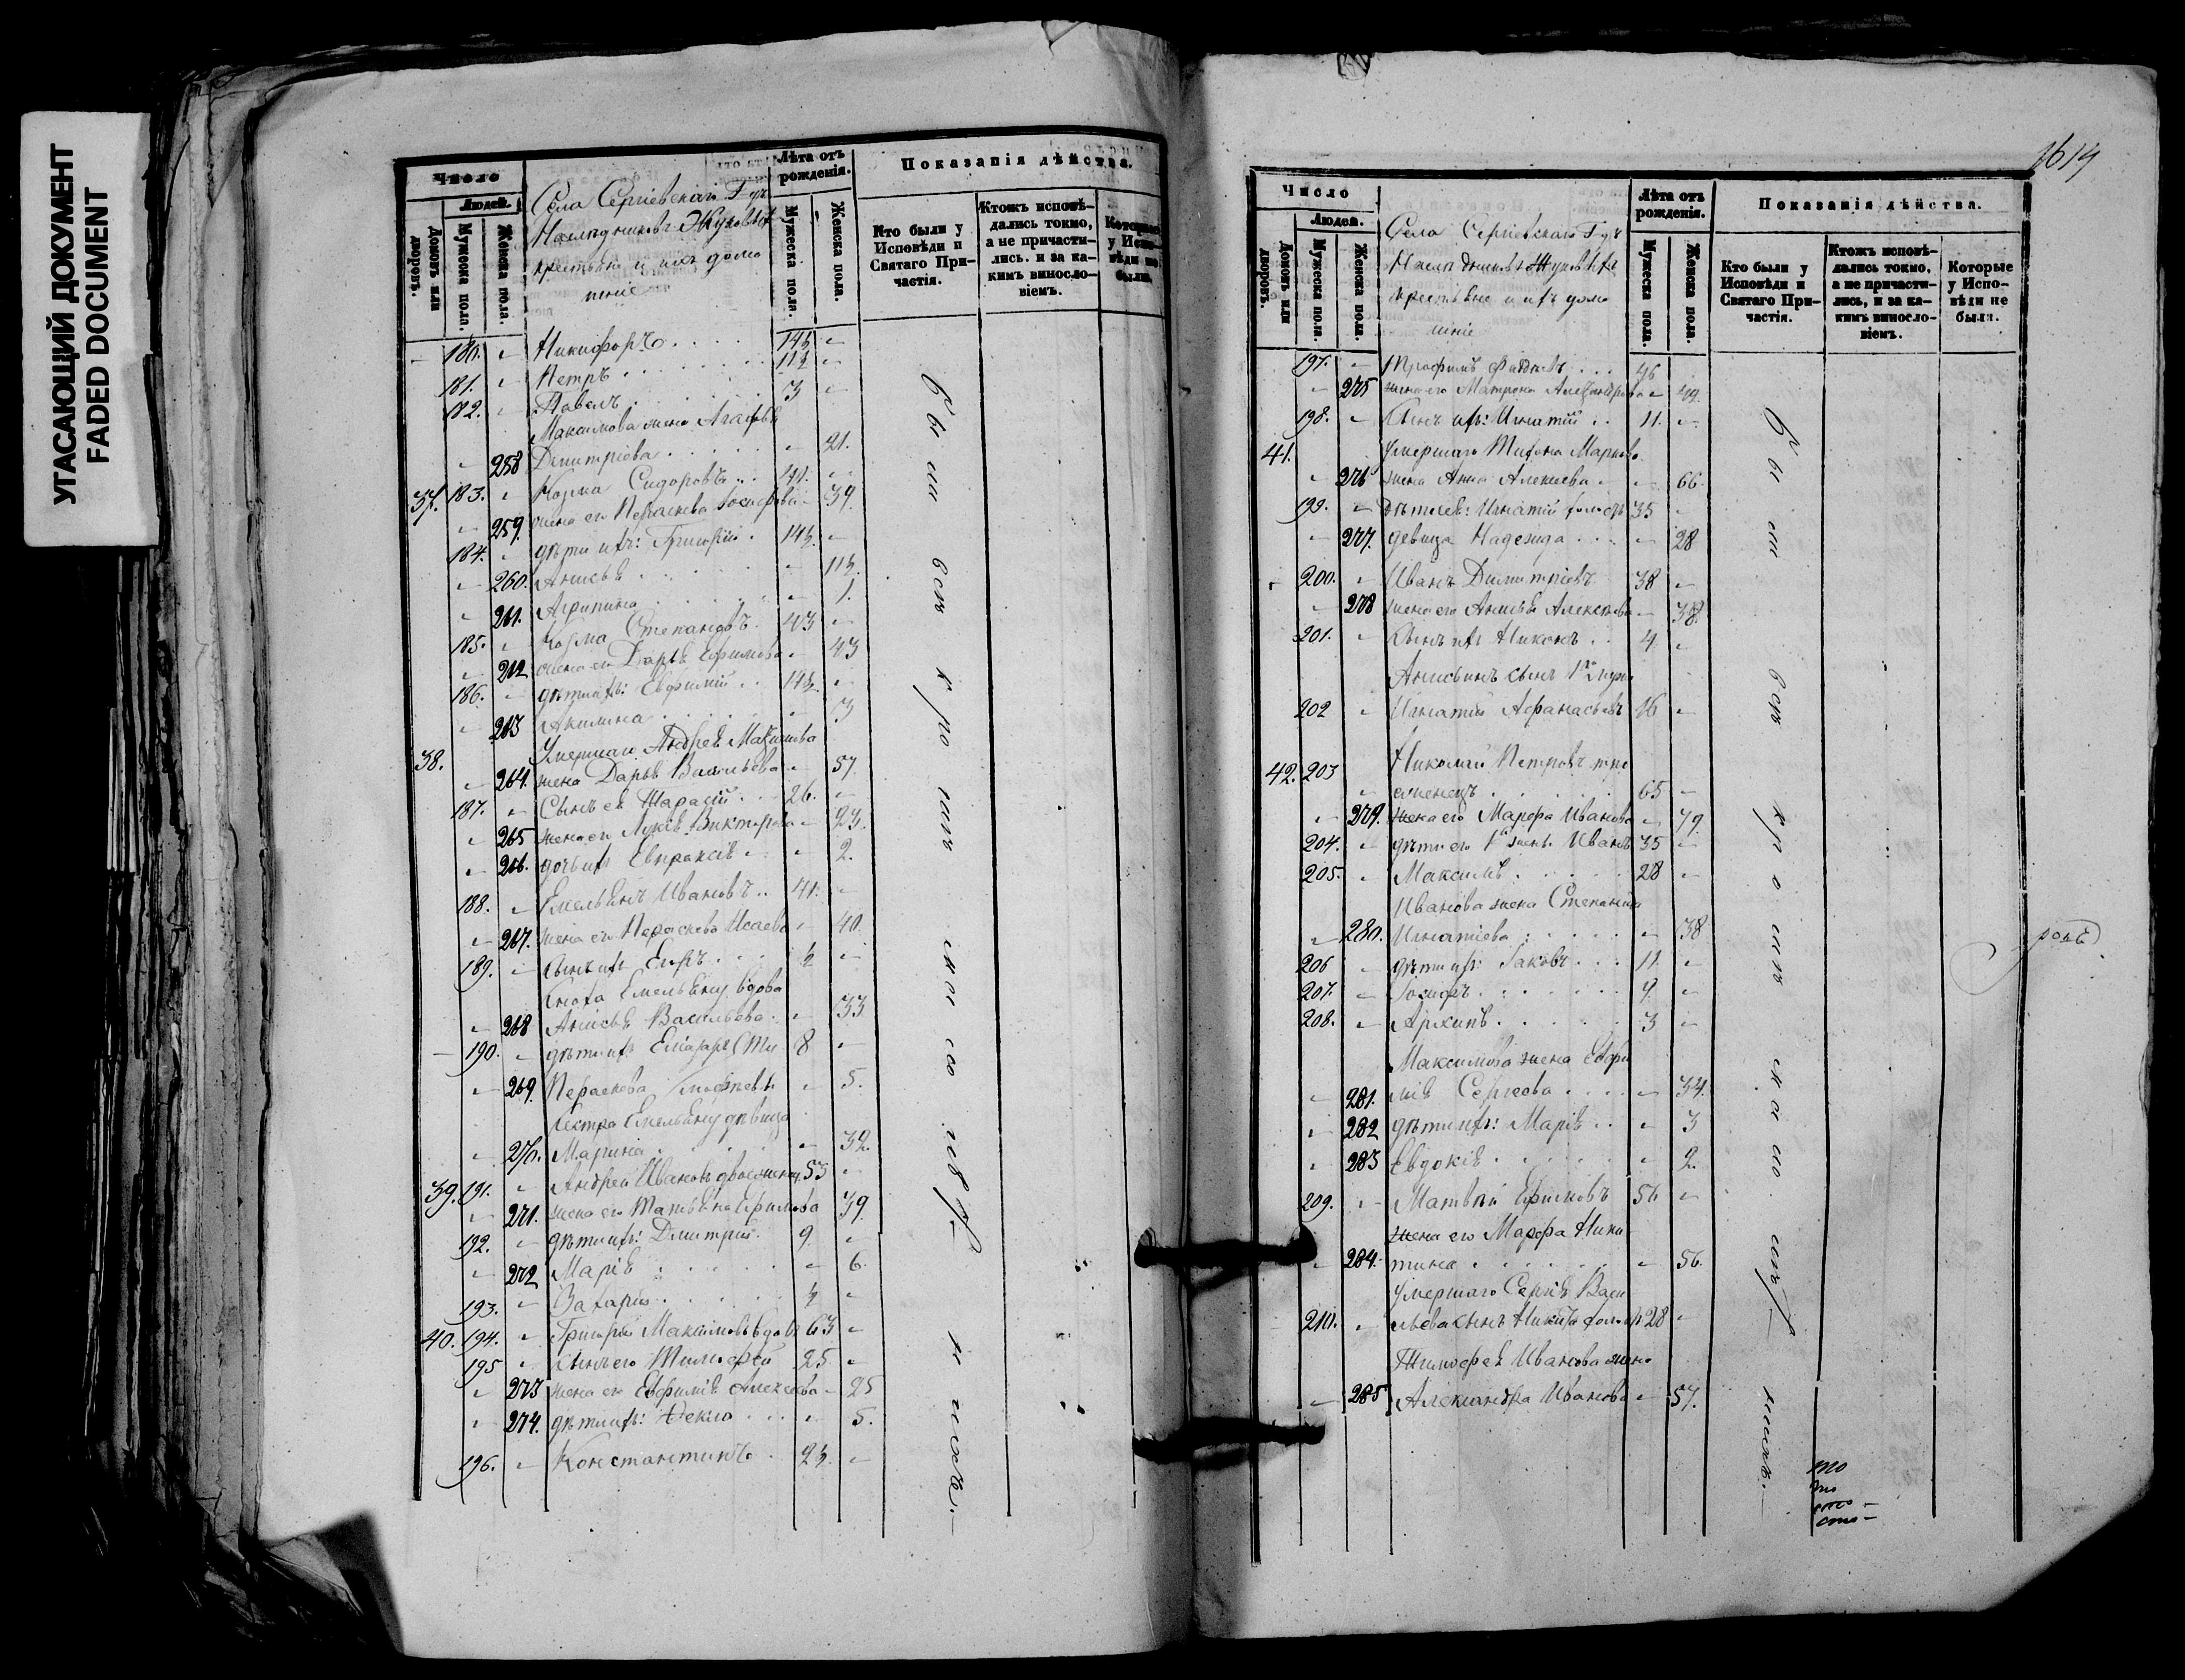 УГАСАЮЩИЙ ДОКУМЕНТ
FADED DOCUMENT
Число
Людей.
Домовъ или дворовъ.
Мужеска пола.
Женска пола.
Села Сергіевскаго Г дъ
Наслѣдниковъ Жуковыхъ
крестьяне и ихъ дома
шніе
Лѣта отъ рожденія.
Мужеска пола.
Женска пола.
Показанія дѣйства.
Кто были у Исповѣди и Святаго Причастія.
Ктожъ исповѣдались токмо, а не причастились. и за какимъ винословіемъ.
Которые у Исповѣди не были.
180. Никифоръ 14½
181. Петръ 11½
182. Павелъ 3
Максимова жена Агафья
258 Дмитріева 21.
37. 183. Козма Сидоровъ 41.
259. жена его Параскева Іосифова 39.
184. дѣти ихъ: Григорій 14½
260. Анисья 11½
261. Агрипина 1.
185. Козма Степановъ 43
262 жена его Дарья Ефимова 43
186. дѣти ихъ: Евфимій 14½
263 Акилина 3
38. Умершаго Андрея Максимова
264. жена Дарья Васильева 57.
187. Сынъ ея Тарасій 26.
265 жена его Лукія Викторова 23.
266. дочь ихъ Евпраксія 2.
188. Емельянъ Ивановъ 41.
267. жена его Параскева Исаева 40.
189. Сынъ ихъ Егоръ ½
Сноха Емельяну вдова
268 Анисья Васильева 33
190. дѣти ихъ 8
269. Параскева 5.
Сестра Емельяну дѣвица
270. Марина 32.
39. 191. Андрей Ивановъ двоеженец 53
271. жена его Татьяна Ефимова 39.
192. дѣти ихъ: Дмитрій 9
272 Марія 6.
193. Захарій ½
40. 194. Григорій Максимовъ вдовъ 63
195 Сынъ его Тимофей 25
273 жена его Евфимія Алексеева 25
274. дѣти ихъ: Фекла 5.
196. Константинъ 2½
были всѣ крометѣхъ
Число
Людей.
Домовъ или дворовъ.
Мужеска пола.
Женска пола.
Села Сергіевскаго Г дъ
Наслѣдниковъ Жуковыхъ
крестьяне и ихъ дома
шніе
Лѣта отъ рожденія.
Мужеска пола.
Женска пола.
Показанія дѣйства.
Кто были у Исповѣди и Святаго Причастія.
Ктожъ исповѣдались токмо, а не причастились, и за какимъ винословіемъ.
Которые у Исповѣди не были.
197. Трофимъ 46
275 жена его Матрона Александрова 49.
198. Сынъ ихъ: Игнатій 11.
41. Умершаго Тихона Маркова
276 жена Анна Алексеева 66.
199. дѣти ея: Игнатій холостъ 35
277. девица Надежда 28
200. Иванъ Димитріевъ 38
278 жена его Анисья Алексеева 38.
201. Сынъ ихъ Никонъ 4
Анисьинъ сынъ 1го мужа
202 Игнатій Афанасьевъ 16
42. 203 Николай Петровъ трое
женецъ 65
279. жена его Марфа Иванова 49.
204. дѣти его 1й жены Иванъ 35
205. Максимъ 28
Иванова жена Степанида
280. Игнатіева 38
206 дѣти ихъ: Іаковъ 11.
207. Іосифъ 9
208. Архипъ 3
Максимова жена Евфи
281. мія Сергеева 34.
282 дѣти ихъ: Марія 3
283 Евдокія 2.
209. Матвѣй Ефимовъ 56
жена его Марфа Ники
284. тина 56.
Умершаго Сергія Васи
210. льева сынъ Никита холостъ 28
Тимофея Иванова жена
285 Александра Иванова 57.